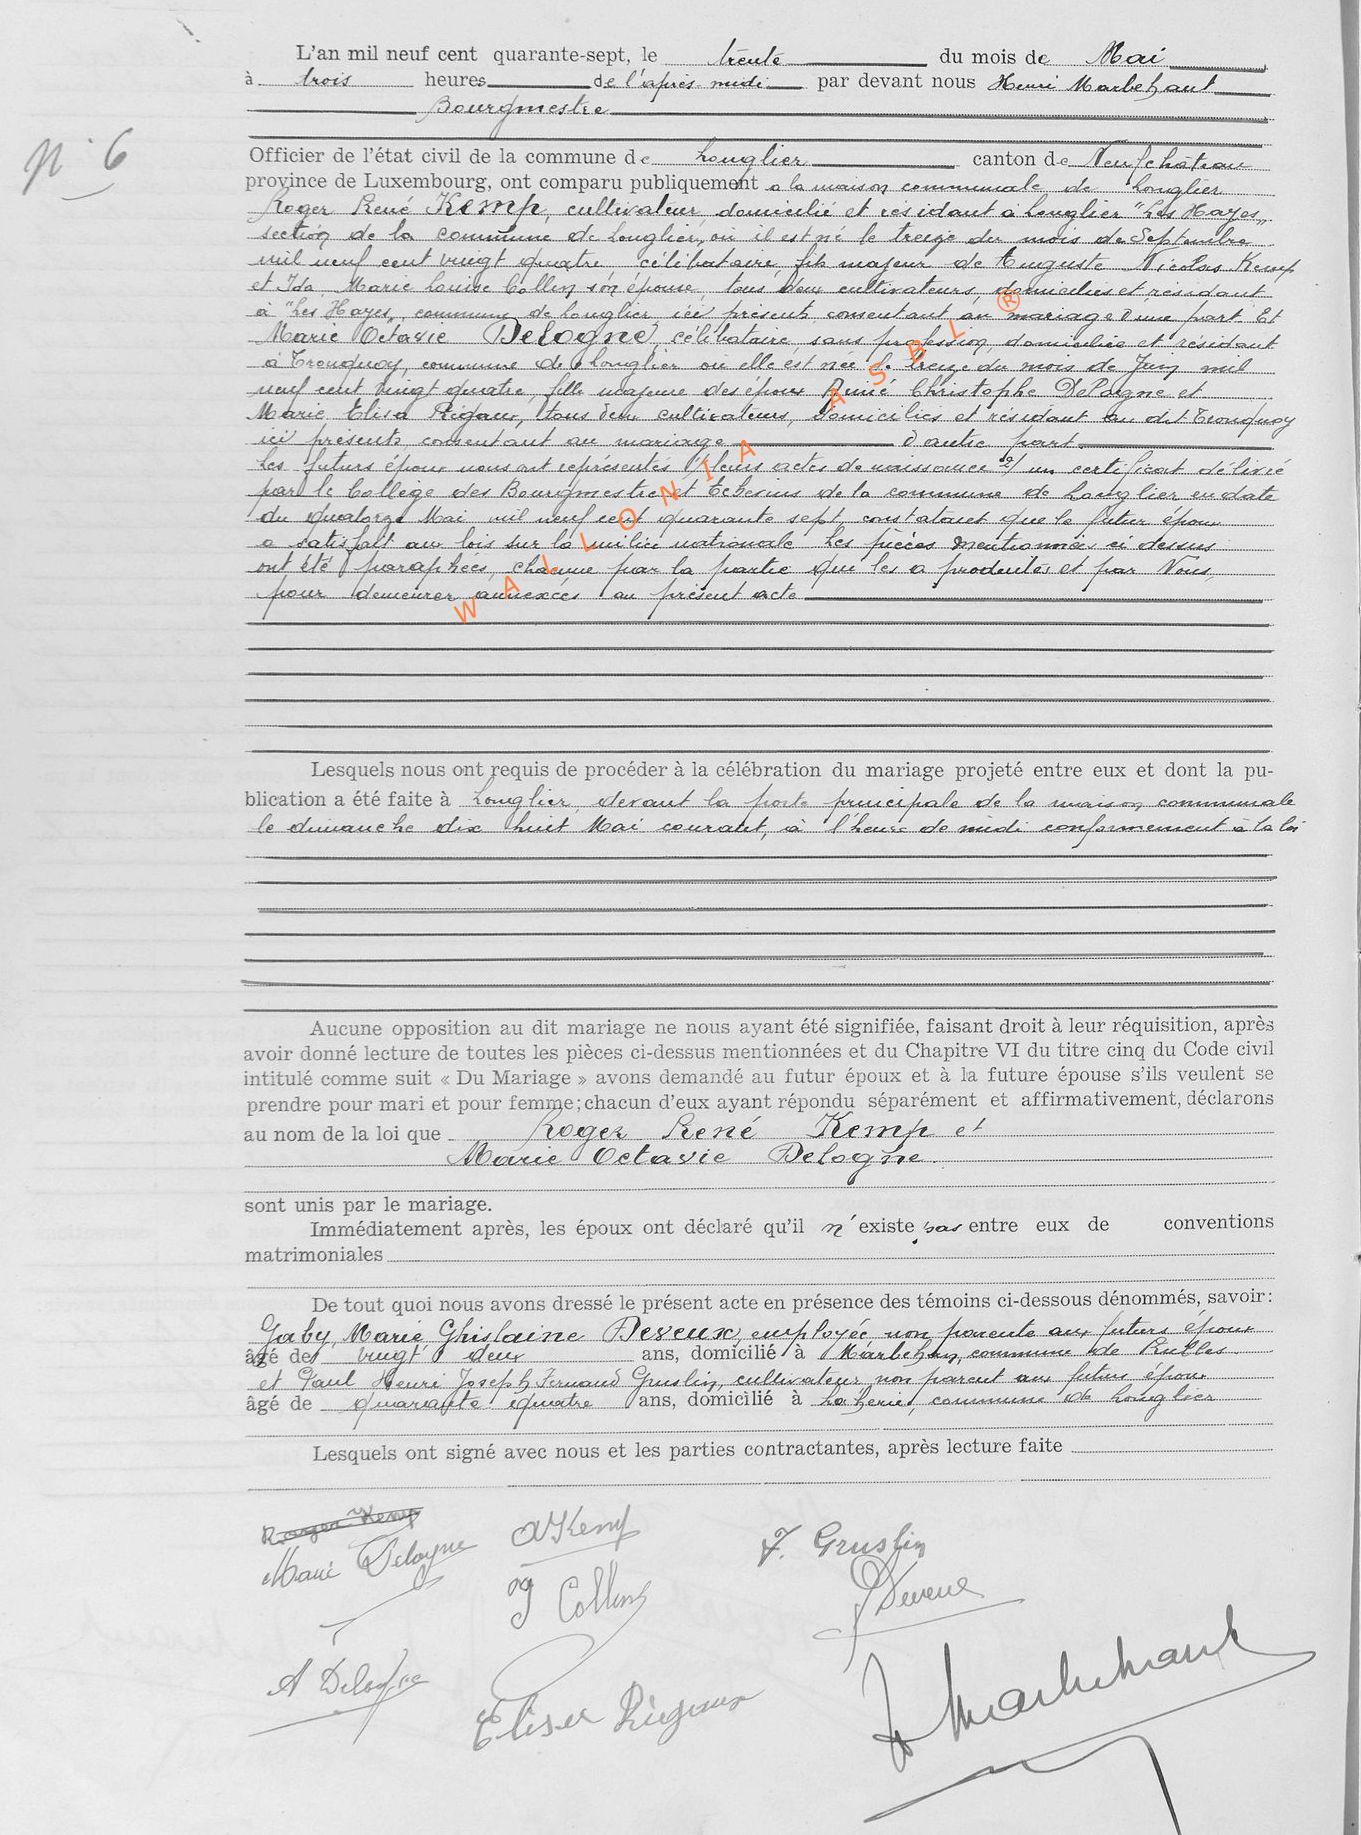 L'an mil neuf cent quarante-sept, le trente du mois de Mai
à trois heures de l'après midi par devant nous Henri Marbehant
Bourgmestre
N° 6
Officier de l'état civil de la commune de Longlier canton de Neufchâteau
province de Luxembourg, ont comparu publiquement a la maison communale de Longlier
Roger René Kemp, cultivateur, domicilié et résidant à Longlier "Les Hayes"
section de la commune de Longlier, où il est né le treize du mois de Septembre
mil neuf cent vingt quatre célibataire, fils majeur de Auguste Nicolas Kemp
et Ida Marie Louise Collin son épouse, tous deux cultivateurs, domiciliés et résidant
à "Les Hayes, commune de Longlier ici présents consentant au mariage d'une part. Et
Marie Octavie Delogne, célibataire, sans profession, domiciliée et résidant
à Tronquoy, commune de Longlier où elle est née le treize du mois de Juin mil
neuf cent vingt quatre, fille majeure des époux Aimé Christophe Delogne et
Marie Elisa Rigaux, tous deux cultivateurs, domiciliés et résidant au dit Tronquoy
ici présents consentant au mariage d'autre part
Les futurs époux nous ont représentés 1/ leurs actes de naissance 2/ un certificat délivré
par le Collège des Bourgmestre et Echevins de la commune de Longlier en date
du quatorze Mai mil neuf cent quarante sept, constatant que le futur époux
a satisfait aux lois sur la milice nationale Les pièces mentionnées ci dessus
ont été paraphées, chacune par la partie qui les a produites et par Nous,
pour demeurer annexées au présent acte
WALLONIA ASBL ®
Lesquels nous ont requis de procéder à la célébration du mariage projeté entre eux et dont la pu-
blication a été faite à Longlier, devant la porte principale de la maison communale
le dimanche dix huit Mai courant, à l'heure de midi conformement à la loi
Aucune opposition au dit mariage ne nous ayant été signifiée, faisant droit à leur réquisition, après
avoir donné lecture de toutes les pièces ci-dessus mentionnées et du Chapitre VI du titre cinq du Code civil
intitulé comme suit « Du Mariage » avons demandé au futur époux et à la future épouse s'ils veulent se
prendre pour mari et pour femme; chacun d'eux ayant répondu séparément et affirmativement, déclarons
au nom de la loi que Roger René Kemp et
Marie Octavie Delogne
sont unis par le mariage.
Immédiatement après, les époux ont déclaré qu'il n'existe pas entre eux de conventions
matrimoniales
De tout quoi nous avons dressé le présent acte en présence des témoins ci-dessous dénommés, savoir:
Gaby Marie Ghislaine Deveux, employée non parente aux futurs époux
âgé de vingt deux ans, domicilié à Marbehan, commune de Rulles
et Paul Henri Joseph Fernand Gruslin, cultivateur non parent aux futurs époux
âgé de quarante quatre ans, domicilié à Lahérie, commune de Longlier
Lesquels ont signé avec nous et les parties contractantes, après lecture faite
Roger Kemp
Marie Delogne
A Kemp
I Collin
F. Gruslin
Deveux
A Delogne
Elisa Rigaux
H Marbehant